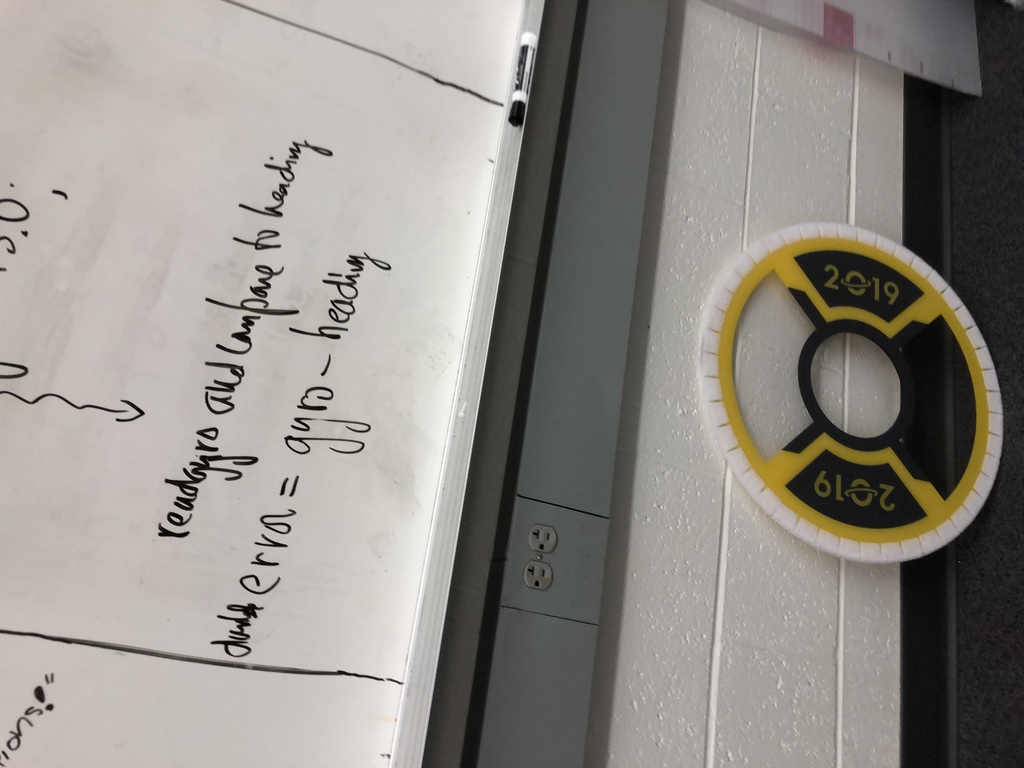 ons."
3.0;
readgyro and compare to heading
double error = gyro - heading
2019
2019